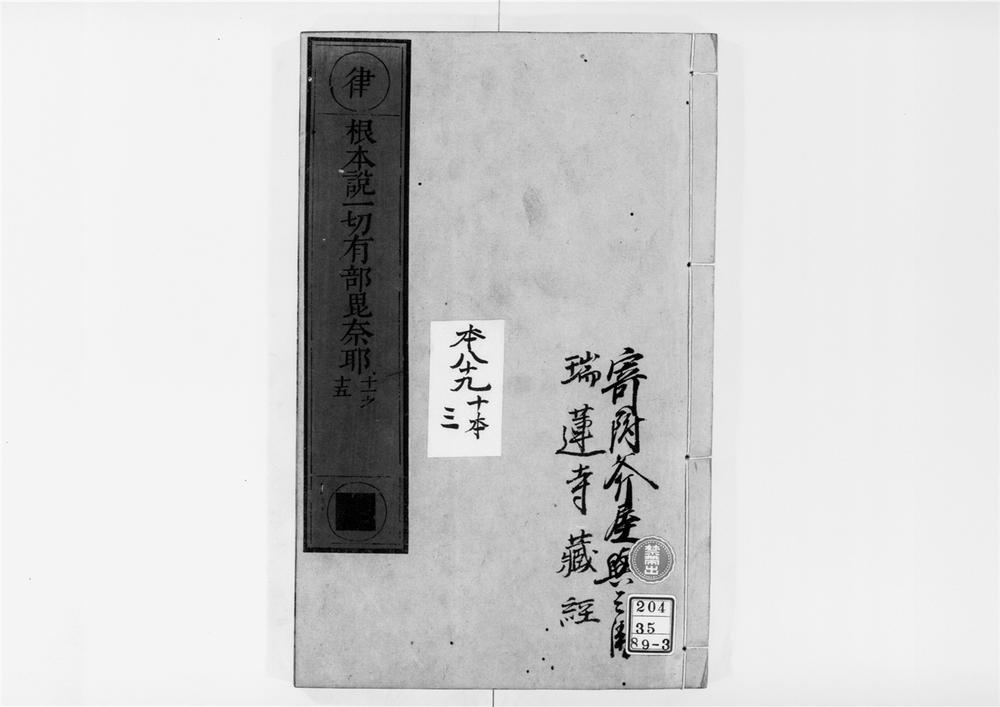 律
根本說一切有部毘奈耶
十一之
十五
本八十九
十本
三
寄附斧屋與三
瑞蓮寺藏經
禁帶出
204
35
89-3